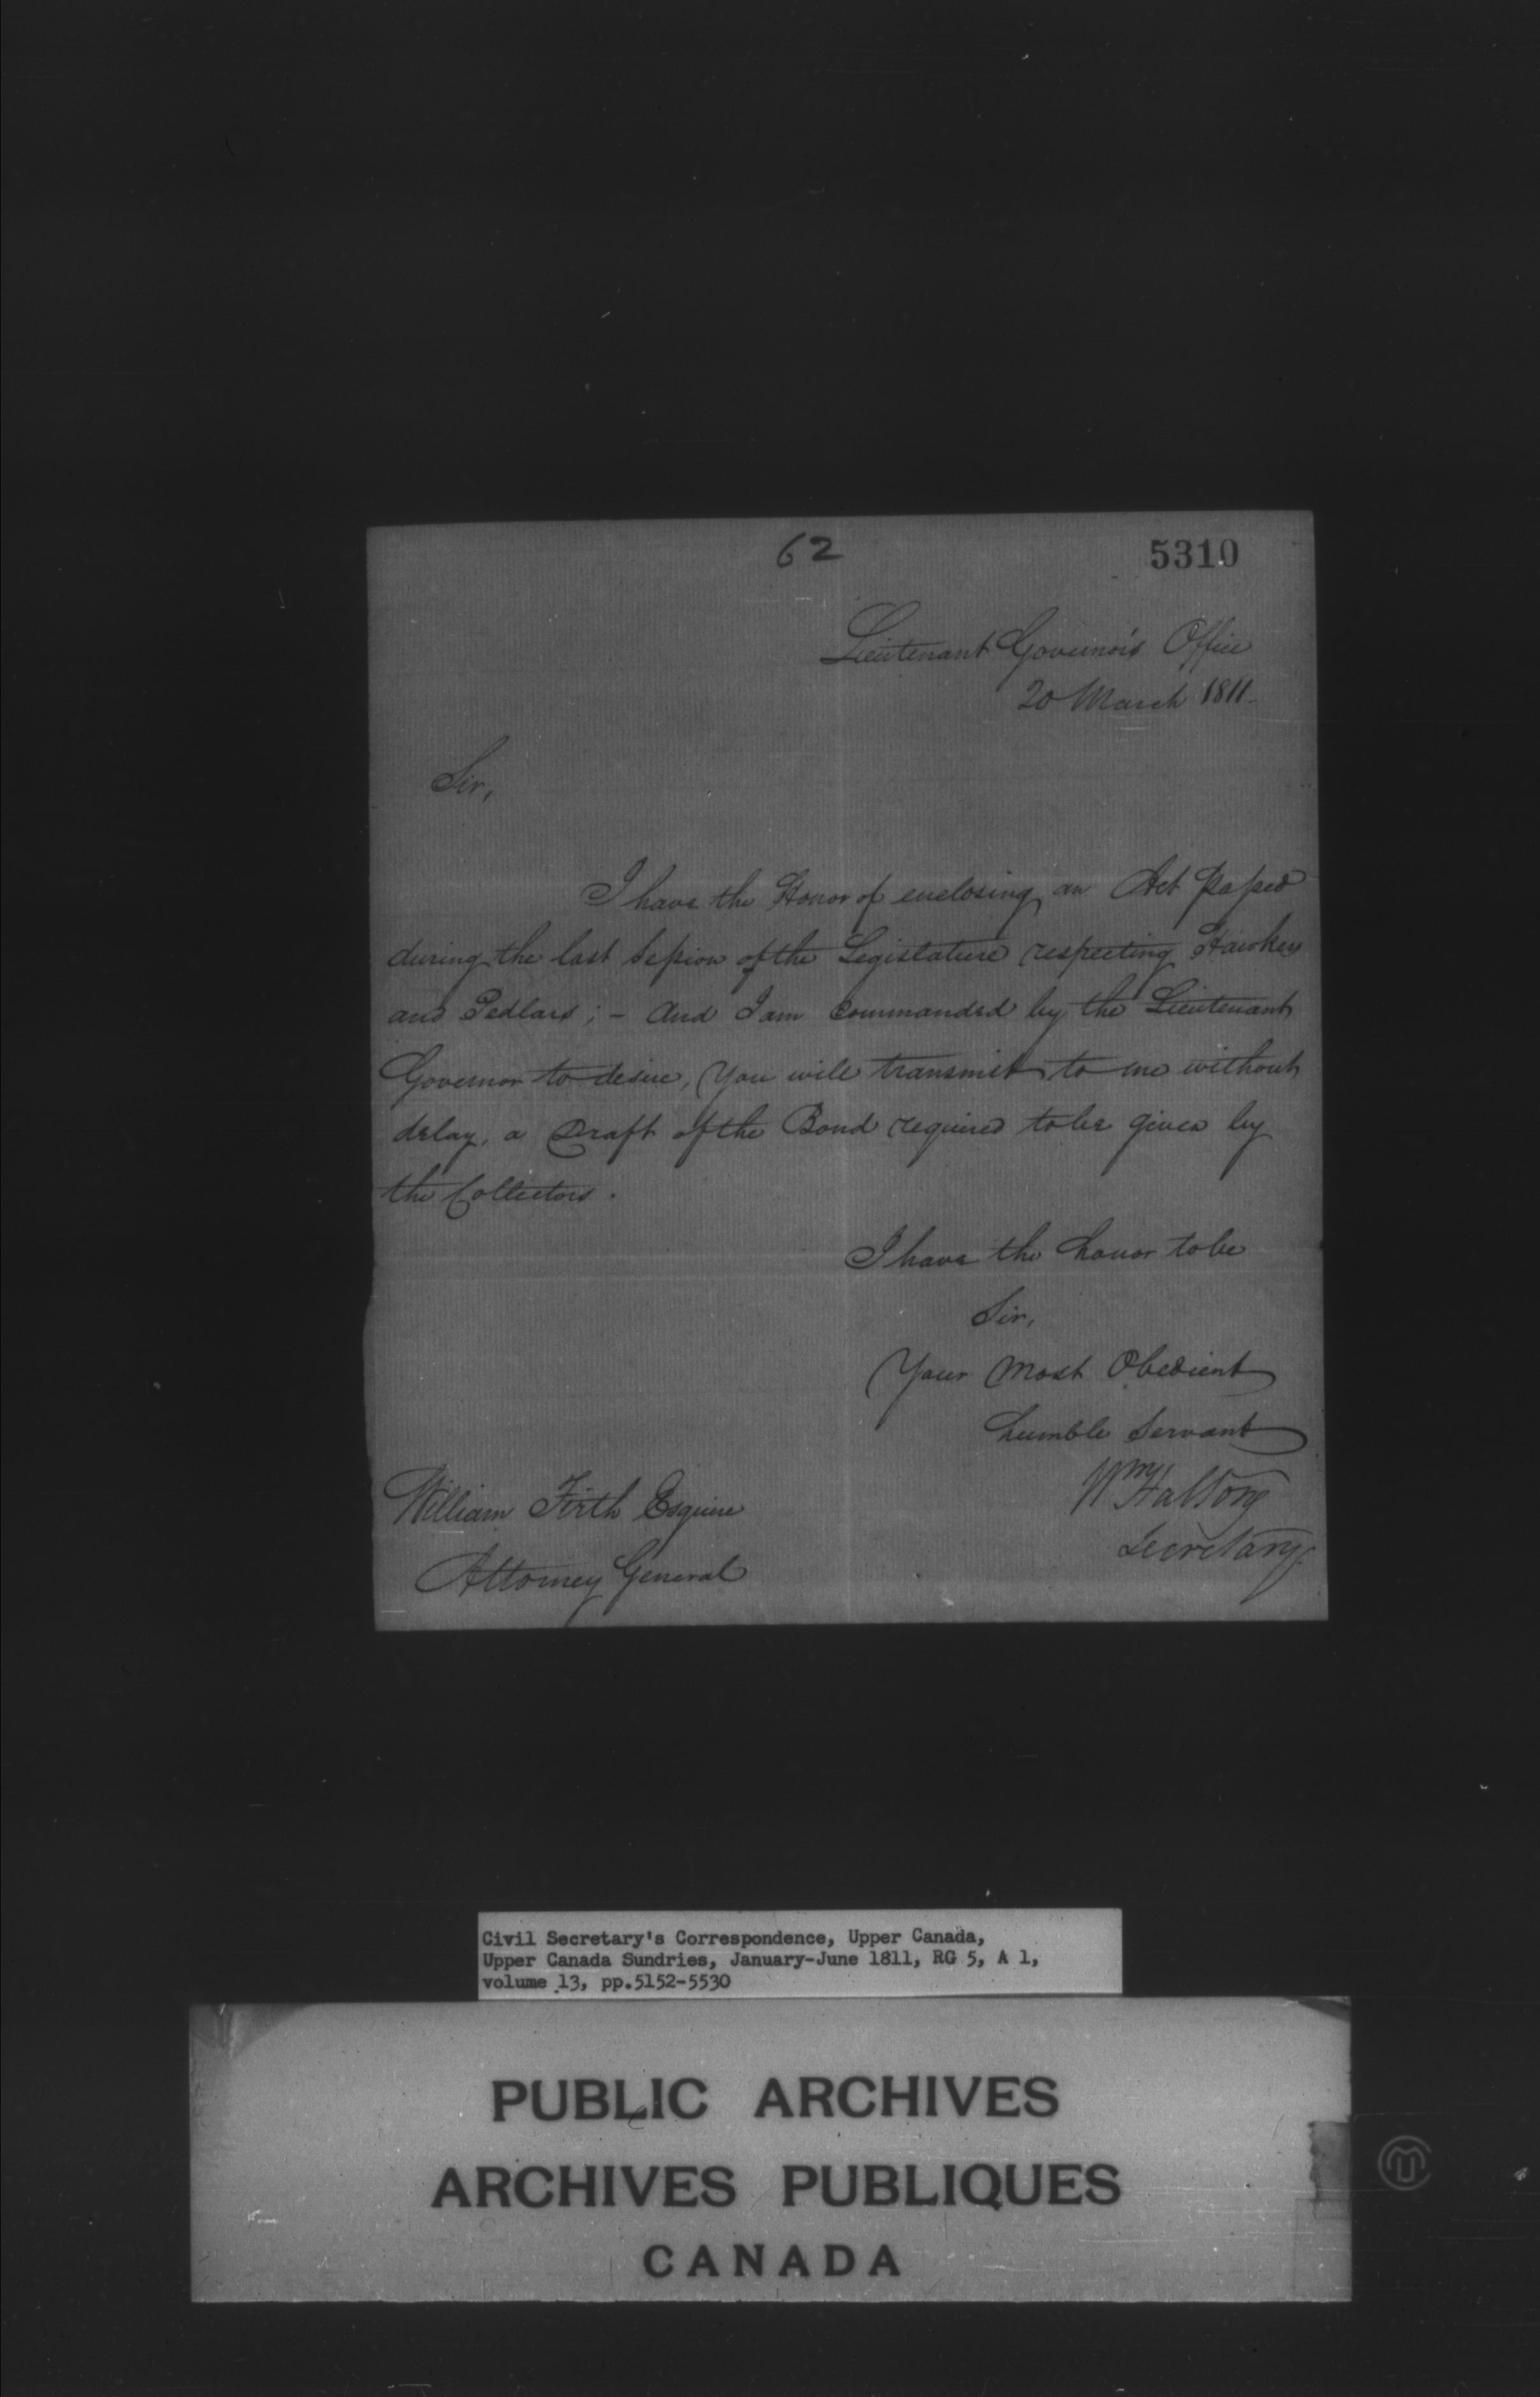 62
5310
Lieutenant Governor's Office
20 March 1811.
Sir,
I have the Honor of enclosing an Act Passed
during the last Session of the Legislature respecting Hawkers
and Pedlars; - And I am Commanded by the Lieutenant
Governor to desire, You will transmit to me without
delay, a Draft of the Bond required to be given by
the Collectors.
I have the honor to be
Sir,
Your Most Obedient
humble Servant
Wm Halton
Secretary.
William Firth Esquire
Attorney General
Civil Secretary's Correspondence, Upper Canada,
Upper Canada Sundries, January-June 1811, RG 5, A 1,
volume 13, pp.5152-5530
PUBLIC ARCHIVES
ARCHIVES PUBLIQUES
CANADA